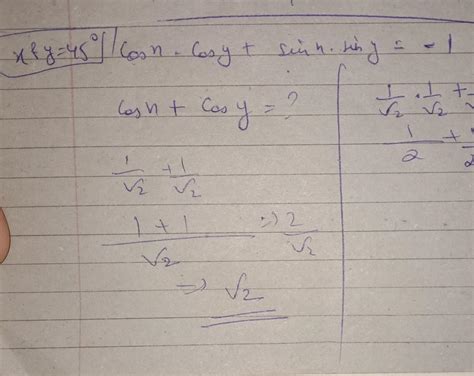 x & y = 45° cos x . cos y + sin x . sin y = - 1
cos x + cos y = ?
1/√2 + 1/√2
1 + 1/√2 => 2/√2
=> √2
1/√2 . 1/√2 +
1/2 +